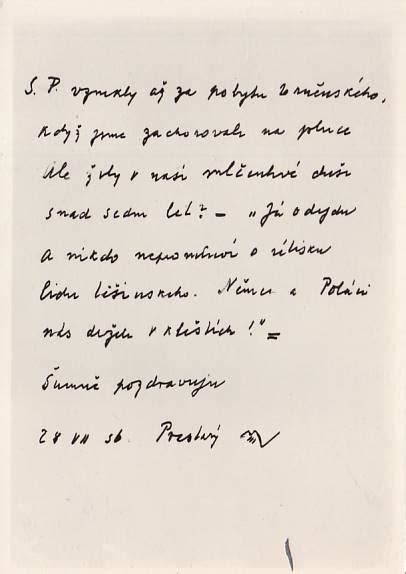 S. P. vznikly až za pobytu brněnského,
když jsme zachorovali na pluce
Ale žily v naší mlčenlivé duši
snad sedm let? — „Já odejdu
a nikdo nepromluví o útisku
lidu těšínskeho. Němci a Poláci
nás drželi v kleštích!“ =
Šumně pozdravuju
28 VII 56